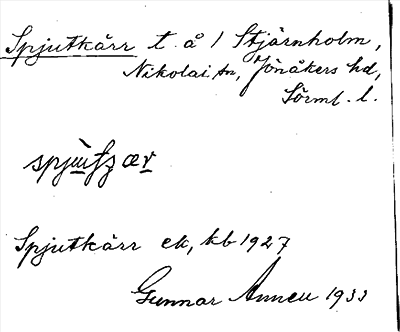 Spjutkärr t. å 1 Stjärnholm,
Nikolai sn, Jönåkers hd,
Sörml. l.
Spjutkärr ek, kb 1927
Gunnar 1933